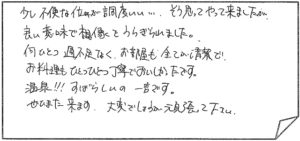 少し不便な位の方が調度いい…、そう思ってやって来ましたが、
良い意味で想像をうらぎられました。
何ひとつ過不足なく、お部屋も全てが清潔で
お料理もひとつひとつ丁寧でおいしかったです。
温泉!!! すばらしいの一言です。
ぜひまた来ます。大変でしょうが元気に張って下さい。